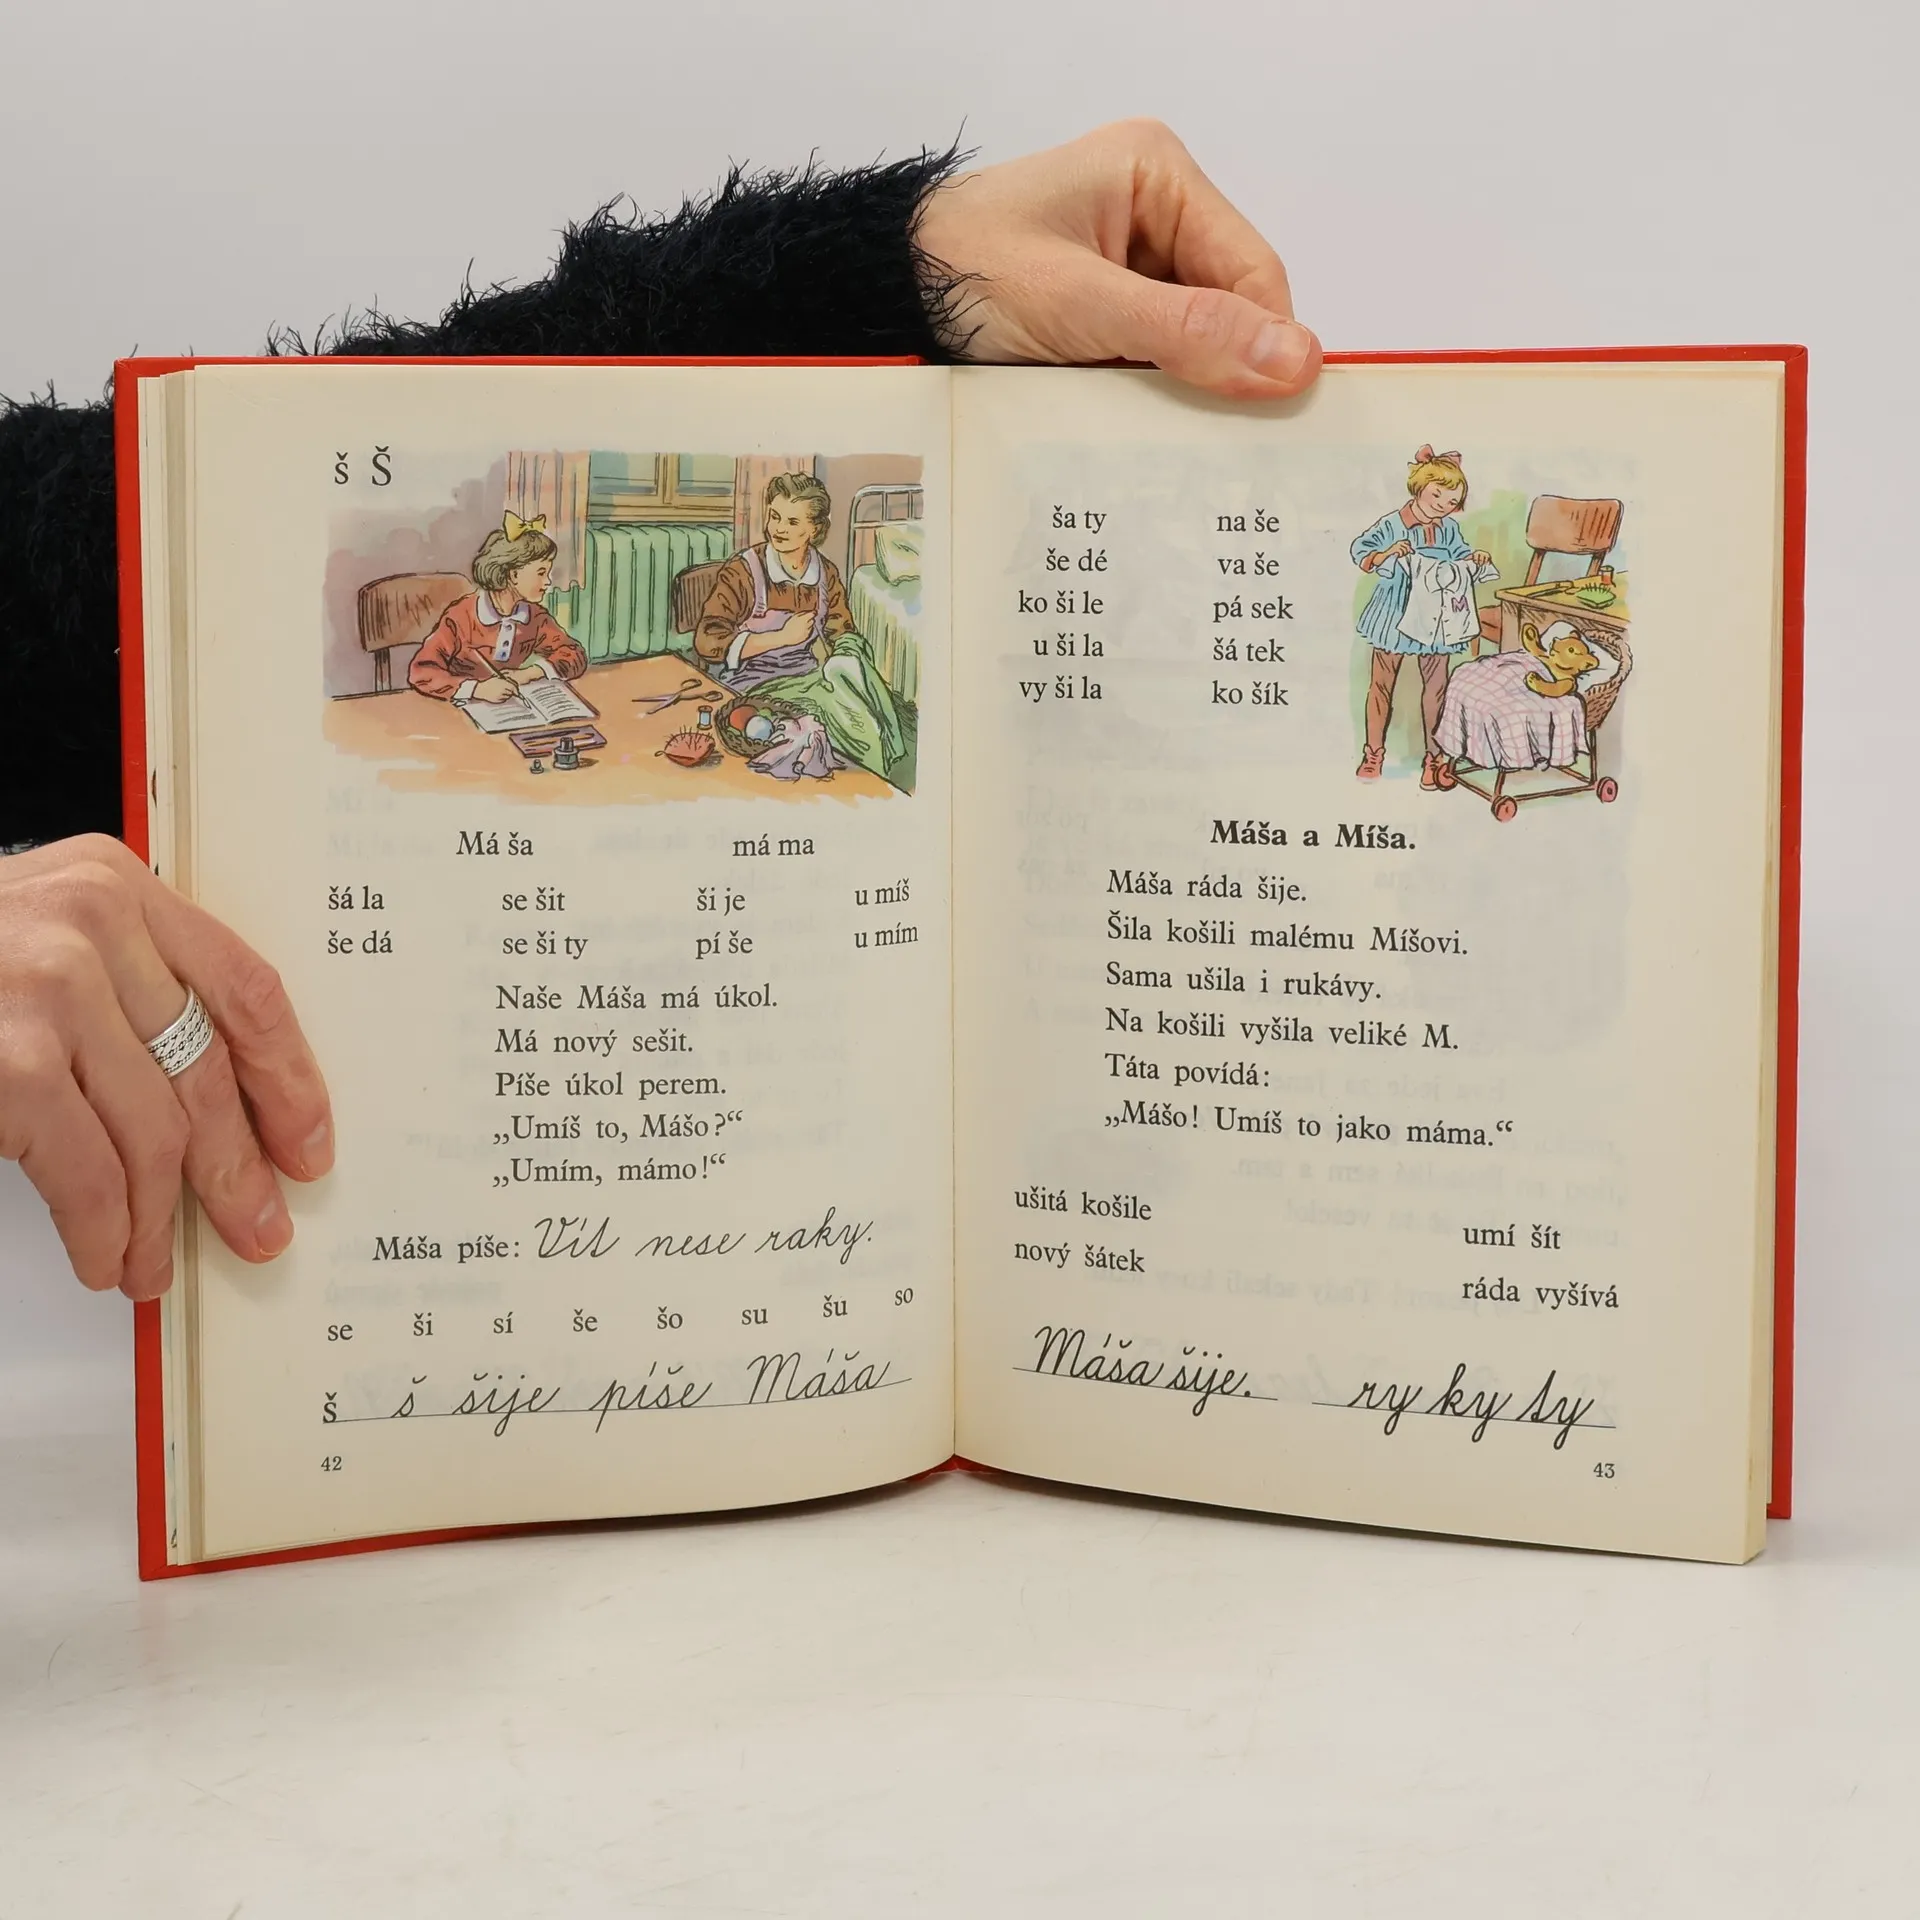 š Š
Má ša má ma
šá la se šit ši je u míš
še dá se ši ty pí še u mím
Naše Máša má úkol.
Má nový sešit.
Píše úkol perem.
„Umíš to, Mášo?“
„Umím, mámo!“
Máša píše: Vít nese raky.
se ši sí še šo su šu so
š š šije píše Máša
42
ša ty na še
še dé va še
ko ši le pá sek
u ši la šá tek
vy ši la ko šík
M
Máša a Míša.
Máša ráda šije.
Šila košili malému Míšovi.
Sama ušila i rukávy.
Na košili vyšila veliké M.
Táta povídá:
„Mášo! Umíš to jako máma.“
ušitá košile umí šít
nový šátek ráda vyšívá
Máša šije. ry ky ty
43